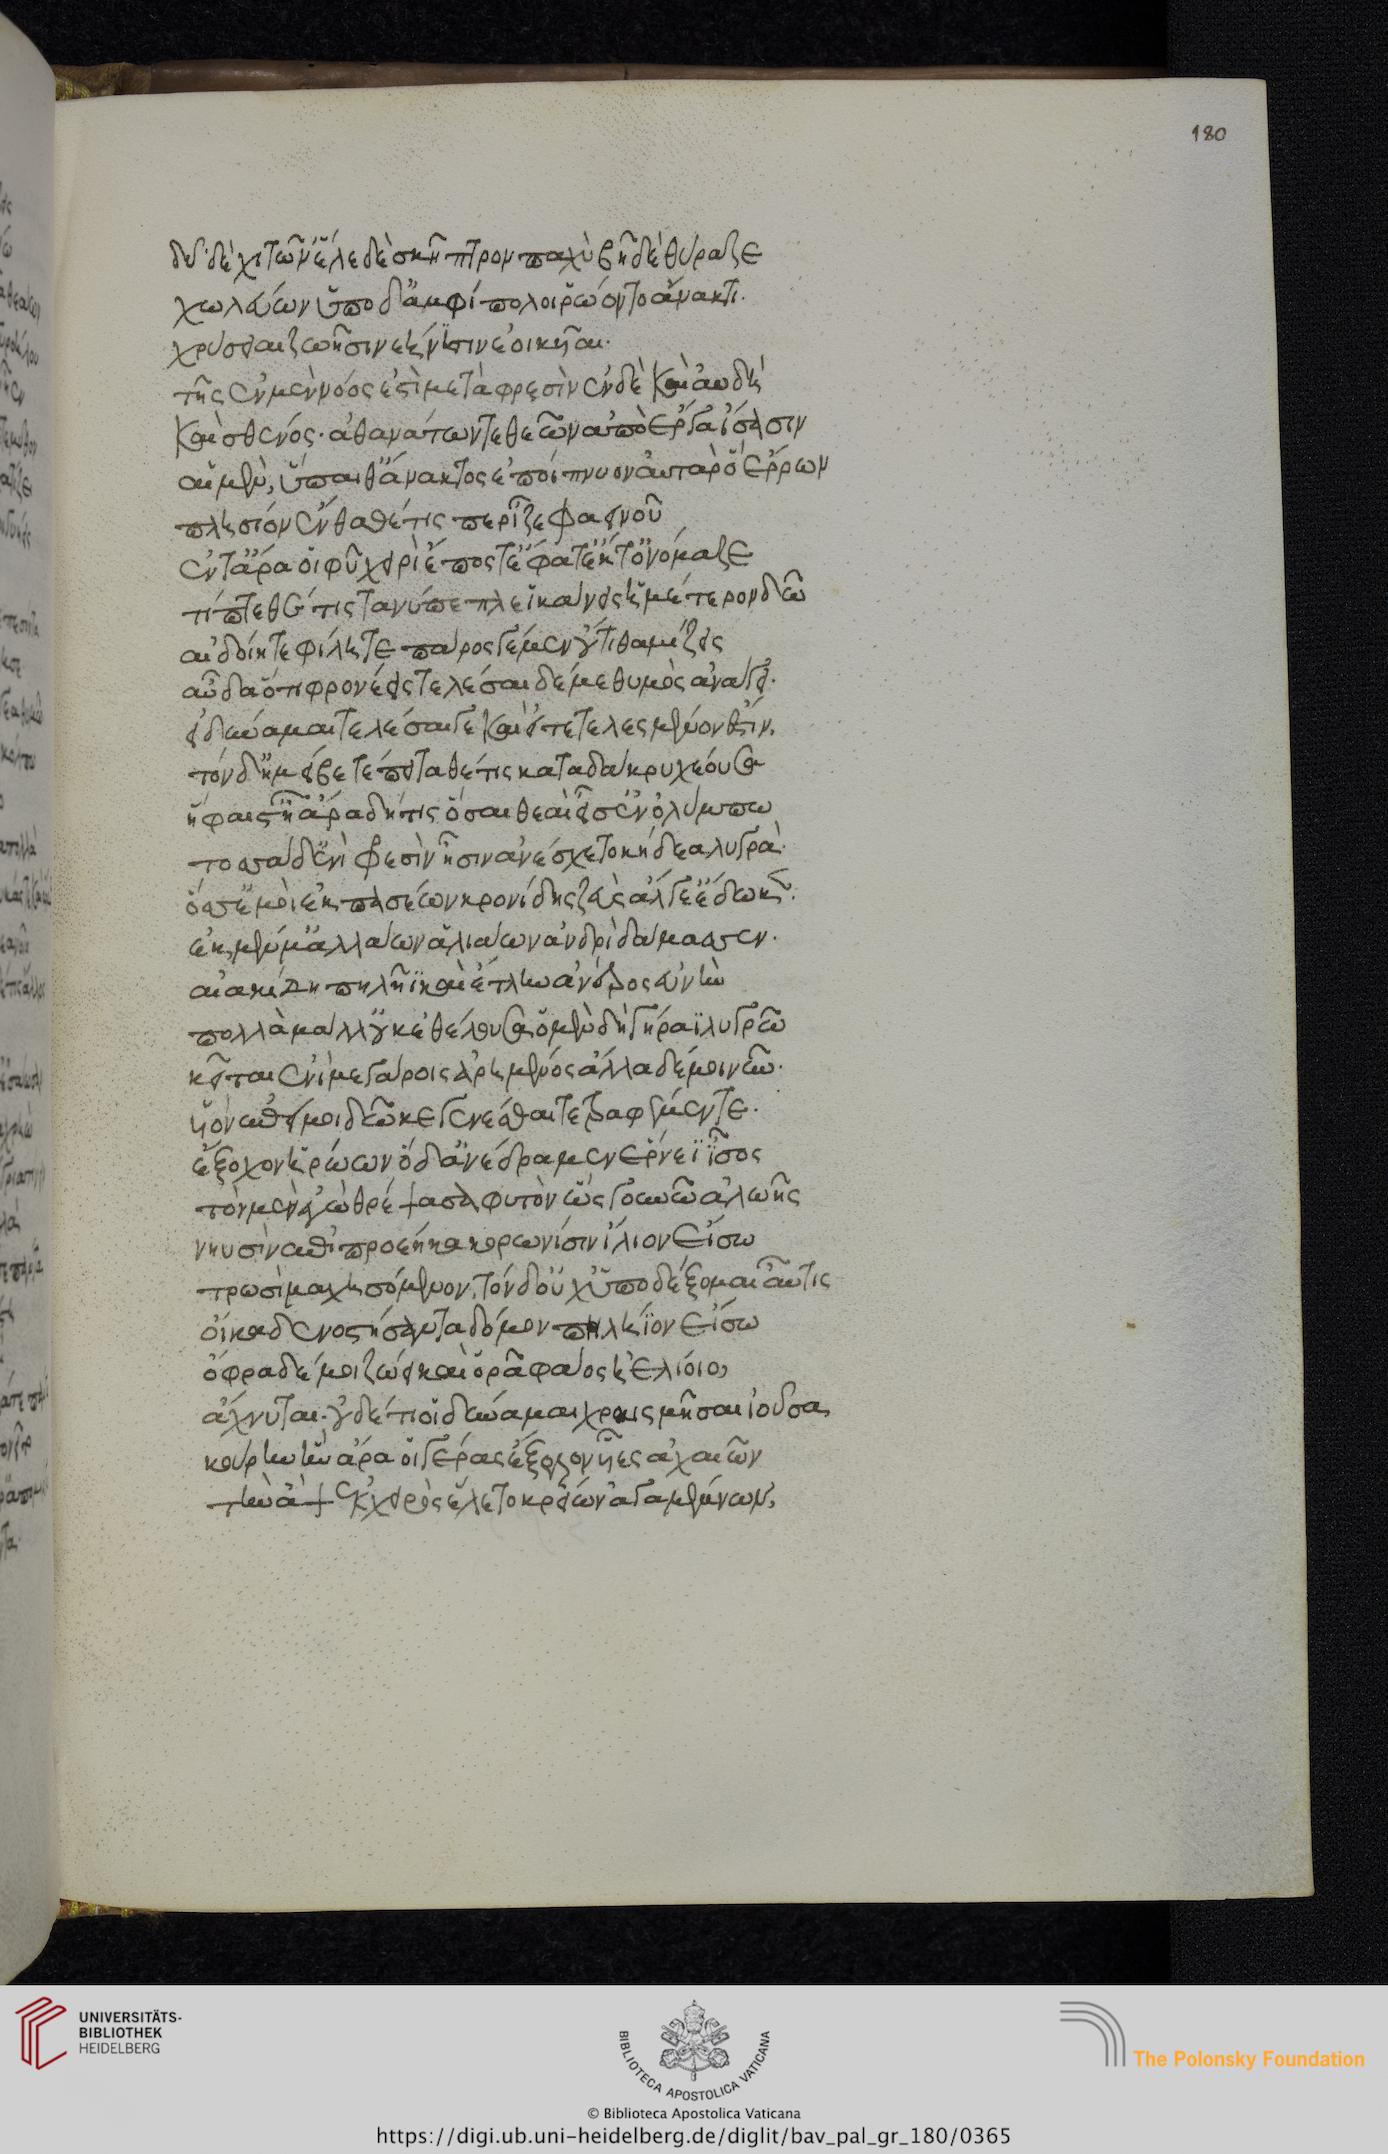 180
δῦ δὲ χιτῶν' ἕλε δὲ σκῆπτρον παχὺ βῆ δὲ θύραζε
χωλεύων ὑπὸ δ' ἀμφίπολοι ῥώοντο ἄνακτι.
χρύσειαι ζωῇσιν νεήνισιν εἰοικυῖαι.
τῆς ἐν μὲν νόος ἐστὶ μετὰ φρεσὶν ἐν δὲ καὶ αὐδὴ
καὶ σθένος. ἀθανάτων τε θεῶν ἄπο ἔργα ἴσασιν
αἱ μὲν, ὕπαιθα ἄνακτος ἐποίπνυον αὐτὰρ ὃ ἔρρων
πλησίον ἔνθα θέτις περ ἵζε φαεινοῦ
ἔν τ' ἄρα οἱ φῦ χειρὶ ἔπος τ' ἔφατ' ἔκ τ' ὀνόμαζε
τίπτε θέτις τανύπεπλε ἱκάνεις ἡμέτερον δῶ
αἰδοίη τε φίλη τε πάρος γε μὲν οὔτι θαμίζεις
αὔδα ὅτι φρονέεις τελέσαι δέ με θυμὸς ἀνώγει.
εἰ δύναμαι τελέσαι γε καὶ εἰ τετελεσμένον ἐστίν.
τὸν δ' ἠμείβετ' ἔπειτα θέτις κατὰ δάκρυ χέουσα
ἥφαιστ' ἦ ἄρα δή τις ὅσαι θεαί εἰσ' ἐν ὀλύμπω
τοσσάδ' ἐνὶ φρεσὶν ᾗσιν ἀνέσχετο κήδεα λυγρά.
ὅσσ' ἐμοὶ ἐκ πασέων κρονίδης ζεὺς ἄλγε' ἔδωκεν.
ἐκ μέν μ' ἀλλάων ἁλιάων ἀνδρὶ δάμασσεν.
αἰακίδη πηλῆϊ καὶ ἔτλην ἀνέρος εὐνὴν
πολλὰ μάλ' οὐκ ἐθέλουσα ὁ μὲν δὴ γήραϊ λυγρῶ
κεῖται ἐνὶ μεγάροις ἀρημένος ἄλλα δέ μοι νῦν.
υἱὸν ἐπεί μοι δῶκε γενέσθαι τε τραφέμεν τε.
ἔξοχον ἡρώων ὁ δ' ἀνέδραμεν ἔρνεϊ ἶσος
τὸν μὲν ἐγὼ θρέψασα φυτὸν ὣς γουνῶ ἀλωῆς
νηυσὶν ἐπιπροέηκα κορωνίσιν ἴλιον εἴσω
τρωσὶ μαχησόμενον, τὸν δ' οὐχ ὑποδέξομαι αὖτις
οἴκαδε νοστήσαντα δόμον πηλήϊον εἴσω
ὄφρα δέ μοι ζώει καὶ ὁρᾶ φάος ἠελίοιο,
ἄχνυται. οὐδέ τί οἱ δύναμαι χραισμῆσαι ἰοῦσα,
κούρην ἣν ἄρα οἱ γέρας ἔξελον υἷες ἀχαιῶν
τὴν ἂψ ἐκ χειρὸς ἕλετο κρείων ἀγαμέμνων,
UNIVERSITÄTS-
BIBLIOTHEK
HEIDELBERG
BIBLIOTECA APOSTOLICA VATICANA
The Polonsky Foundation
© Biblioteca Apostolica Vaticana
https://digi.ub.uni-heidelberg.de/diglit/bav_pal_gr_180/0365